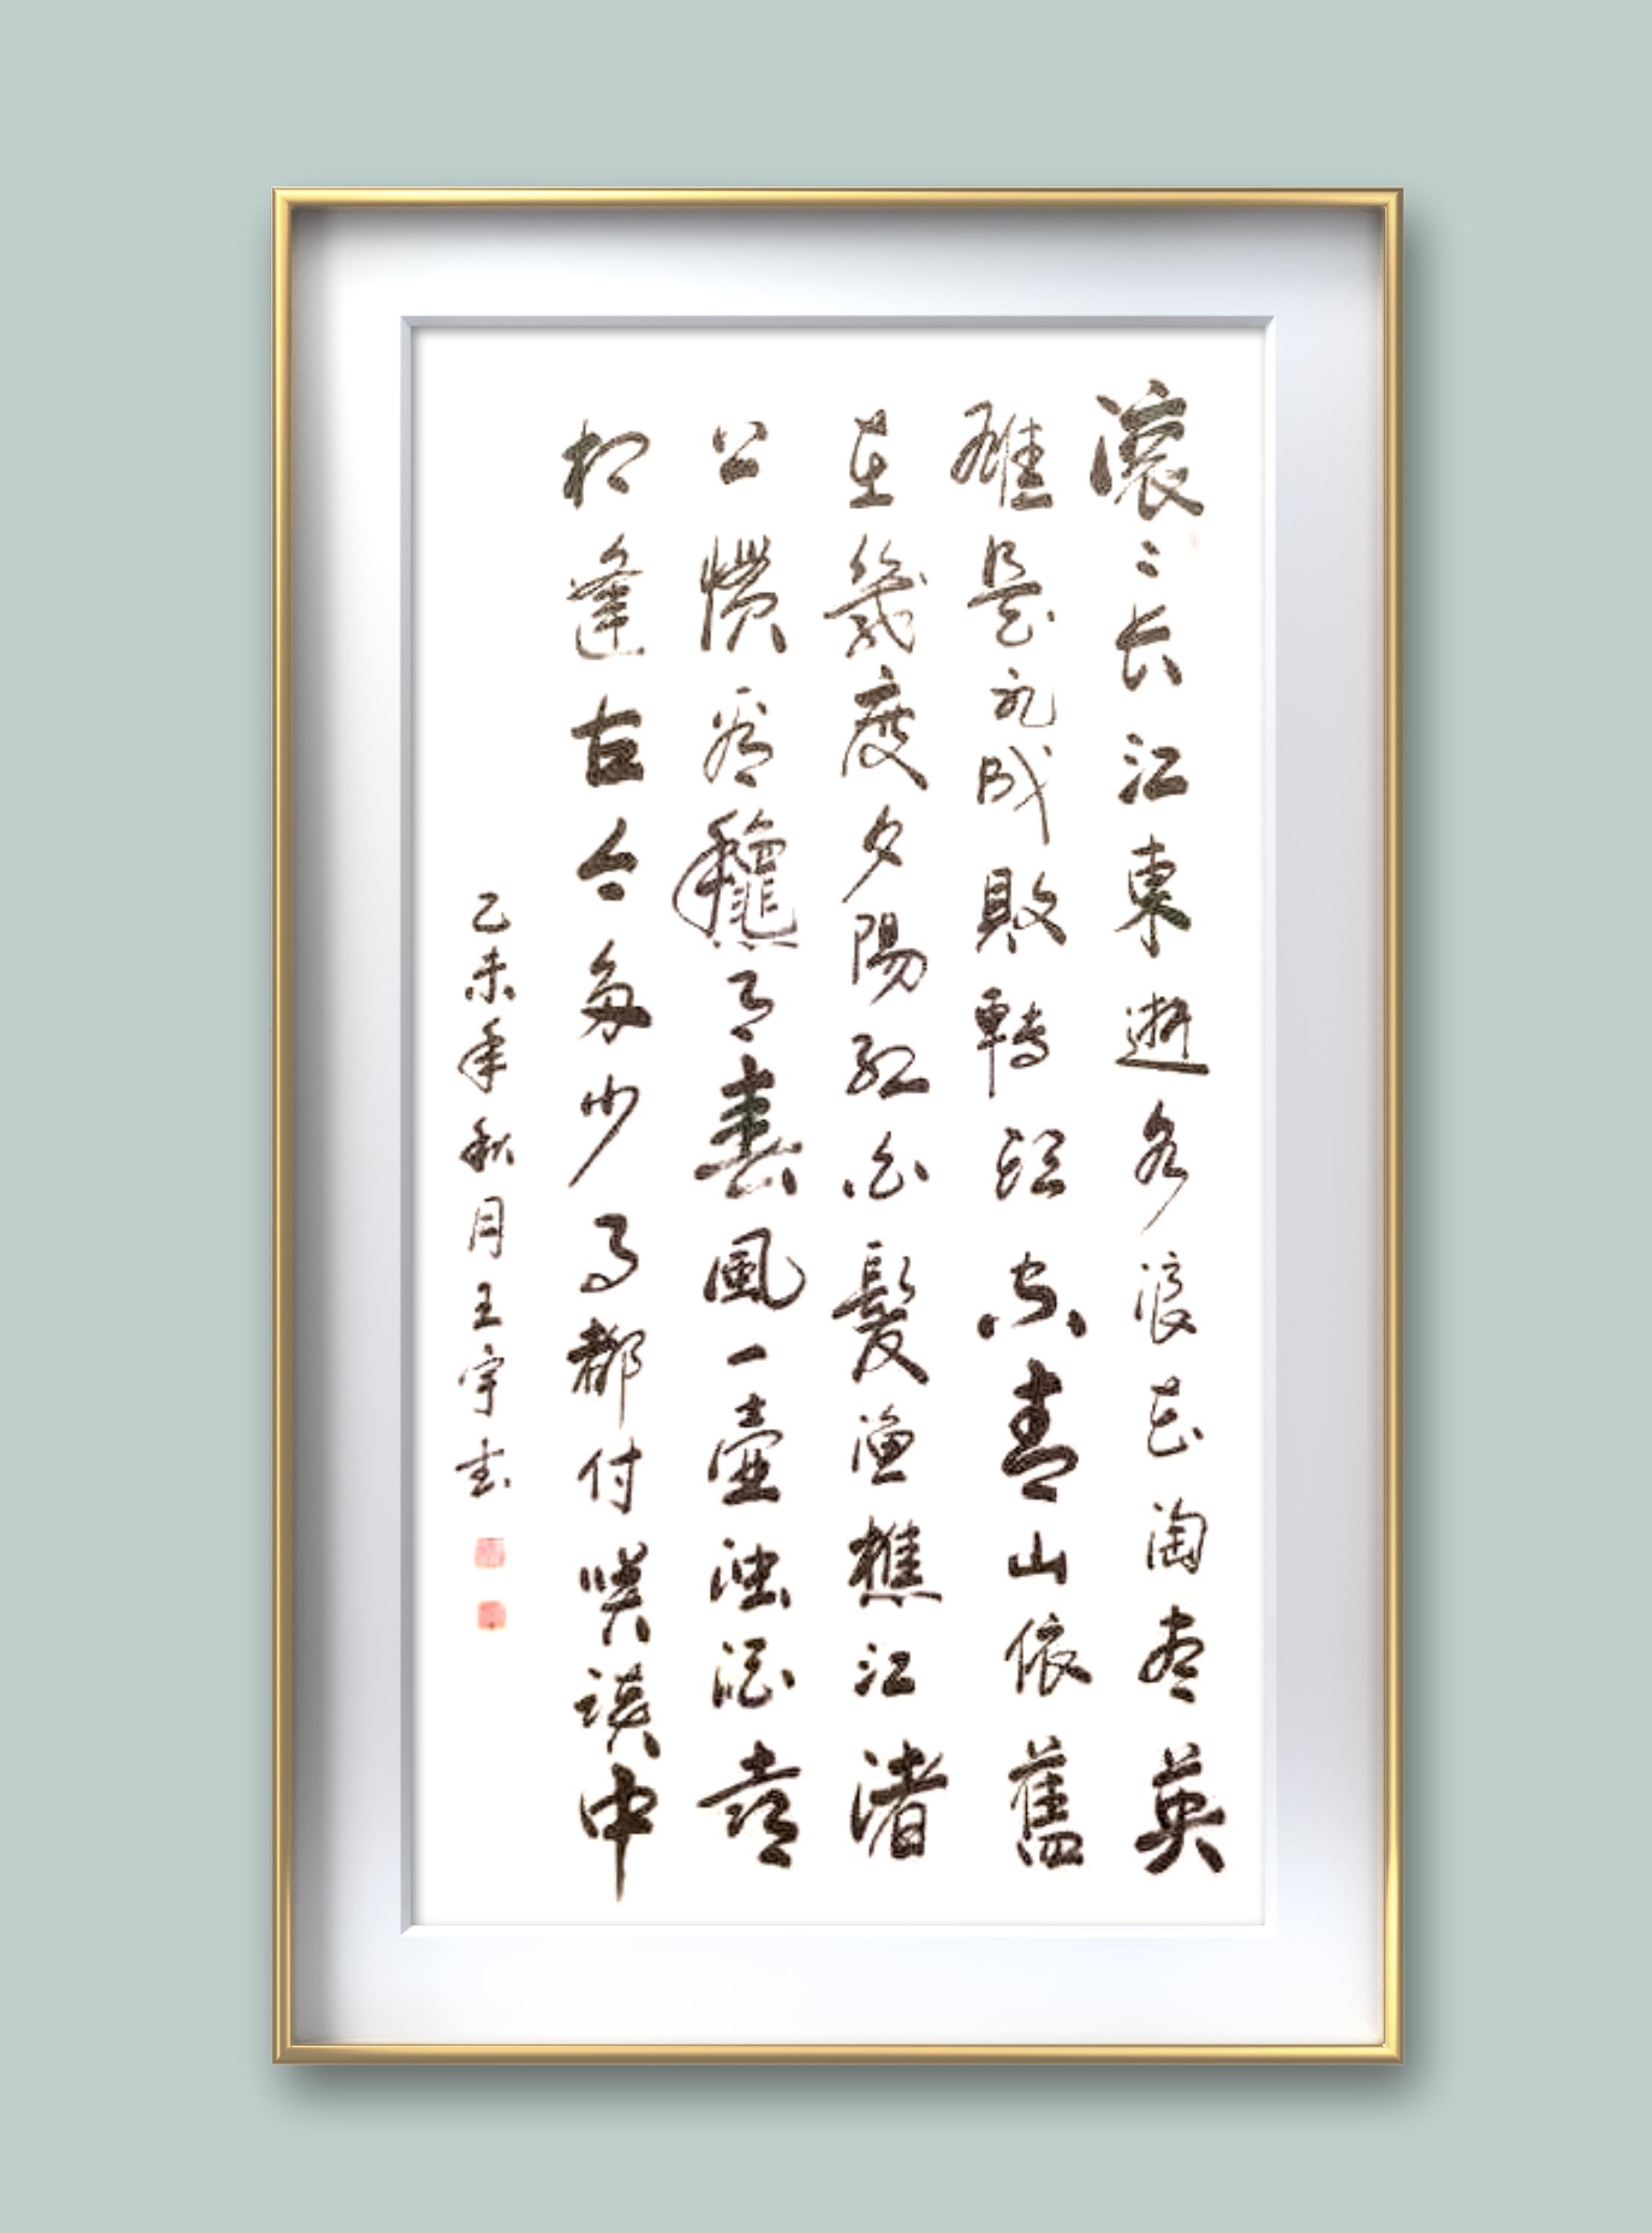 滚〻长江東逝水浪花淘尽英
雄是非成敗轉頭空青山依舊
在幾度夕陽紅白髮渔樵江渚
上慣看穐月春風一壶浊酒喜
相逢古今多少事都付笑談中
乙未年秋月王宇书